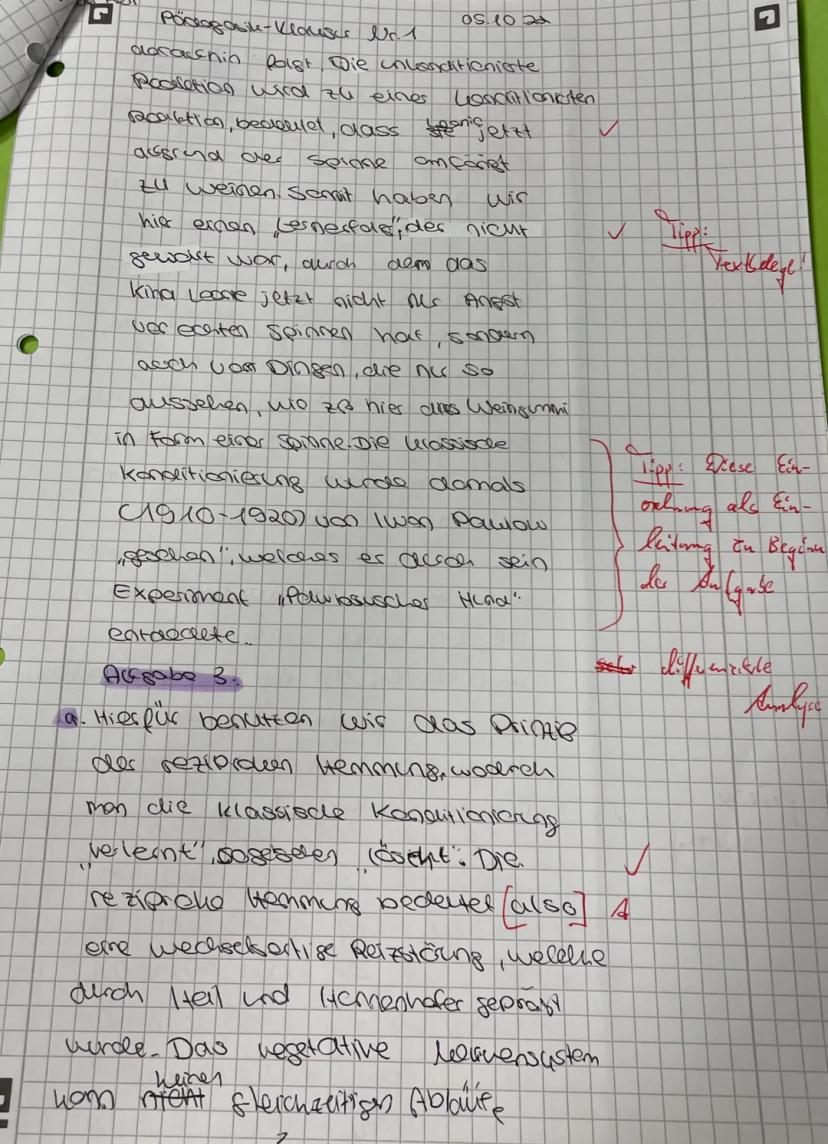 Pädagogik-Klausur Nr.1 05.10
daraufhin folgt. Die unkonditionierte
Reaktion wird zu einer konditionierten
Reaktion, bedeutet, dass jetzt ✓
aufgrund der Spinne anfängt
zu weinen. Somit haben wir
hier einen „Lernerfolg", der nicht ✓ Tipp:
gewollt war, durch dem das Textbelege!
Kind Leonie jetzt nicht nur Angst
vor echten Spinnen hat, sondern
auch vor Dingen, die nur so
aussehen, wo zB hier das Weingummi
in Form einer Spinne. Die klassische Tipp: Diese Ein-
Konditionierung wurde damals ordnung als Ein-
(1910-1920) von Iwan Pawlow leitung zu Beginn
„gesehen", welches er durch sein der Aufgabe
Experiment „Pawlowscher Hund"
entdeckte.
Aufgabe 3. differenzierte
Analyse
a. Hierfür benutzen wir das Prinzip
der reziproken Hemmung, wodurch
man die klassische Konditionierung
„verlernt", sogesehen „löscht". Die ✓
reziproke Hemmung bedeutet [also] A
eine wechselseitige Reizstörung, welche
durch Heil und Hennenhofer geprägt
wurde. Das vegetative Nervensystem
keinen
kann nicht gleichzeitigen Abläufe